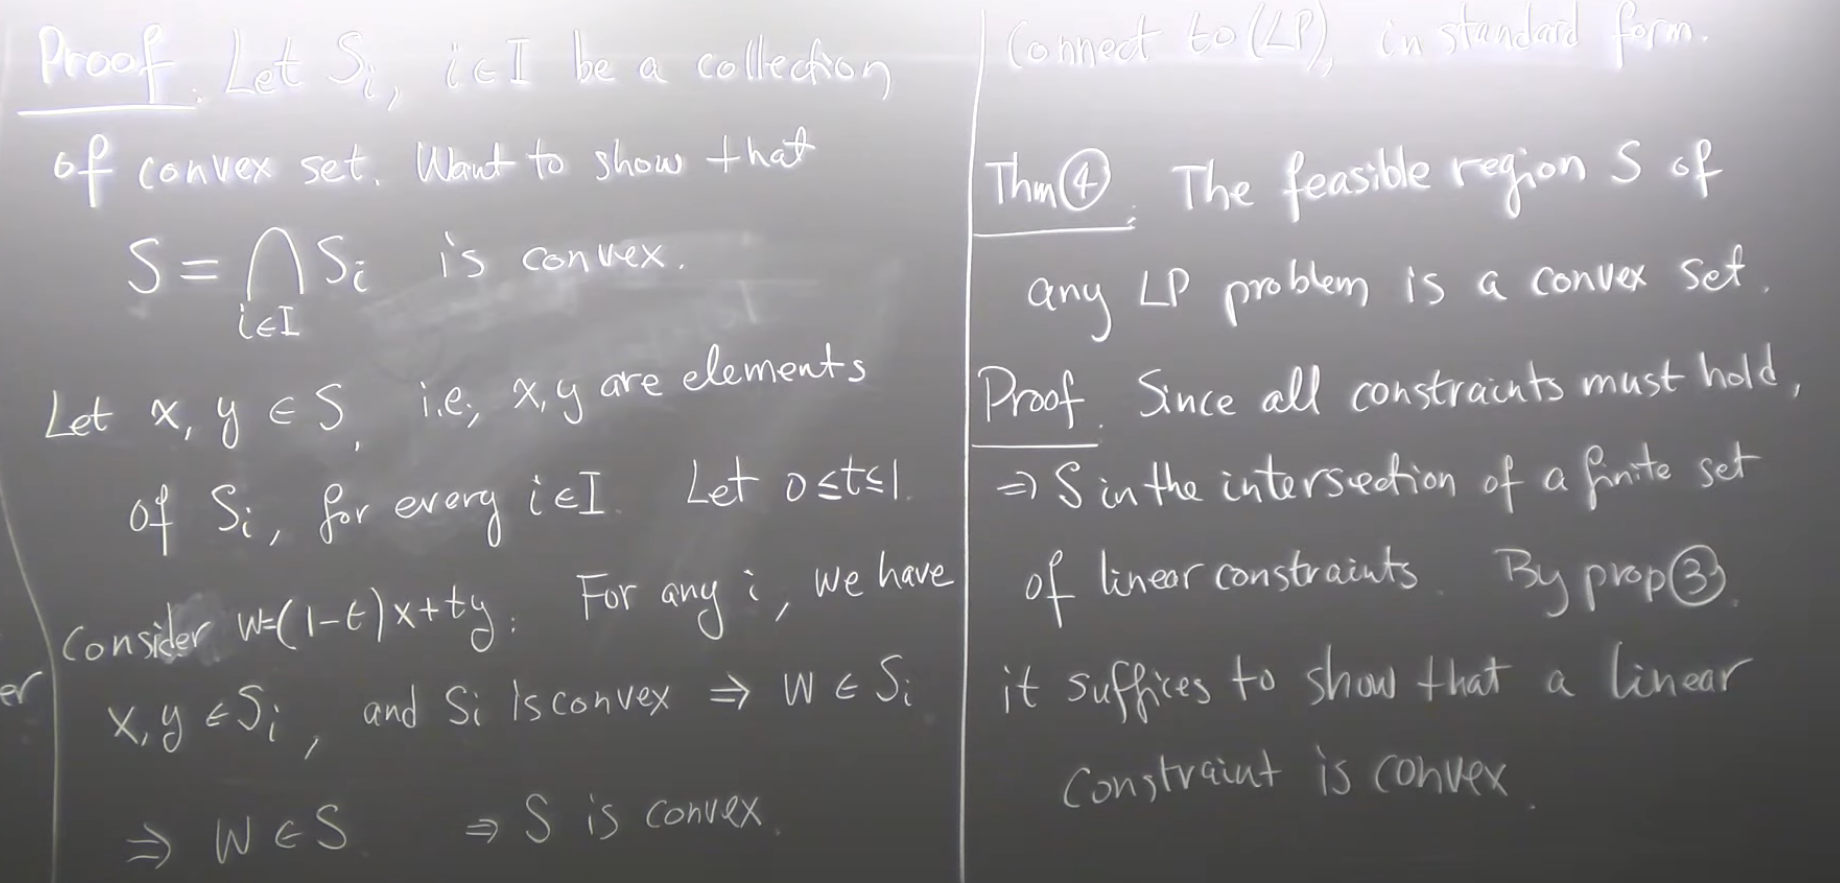 Proof. Let Si, i∈I be a collection
of convex set. Want to show that
S = ⋂ Si is convex.
i∈I
Let x, y ∈ S, i.e., x, y are elements
of Si, for every i∈I. Let 0≤t≤1.
Consider w=(1-t)x+ty. For any i, we have
x, y ∈ Si, and Si is convex ⇒ w ∈ Si
⇒ w ∈ S ⇒ S is convex.
er
Connect to (LP), in standard form.
Thm④. The feasible region S of
any LP problem is a convex set.
Proof. Since all constraints must hold,
⇒ S in the intersection of a finite set
of linear constraints. By prop③.
it suffices to show that a linear
constraint is convex.